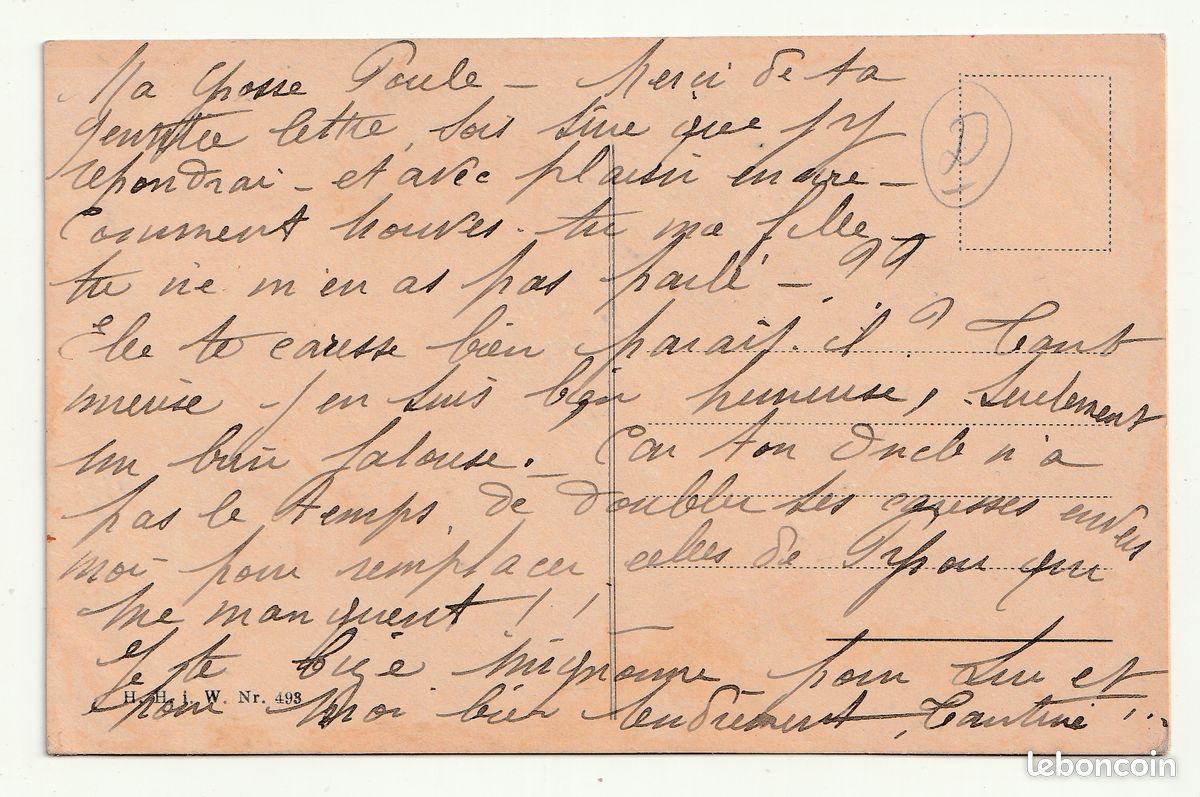 Ma grosse Poule – Merci de ta
gentille lettre, sois sûre que j'y
répondrai – et avec plaisir encore –
Comment trouves-tu ma fille –
tu ne m'en as pas parlé – ??
Elle te caresse bien parait-il ? Tant
mieux – j'en suis bien heureuse, seulement
un brin jalouse. – Car ton Oncle n'a
pas le temps de doubler ses caresses envers
moi pour remplacer celles de qui
me manquent ! !
Je te bige mignonne pour Lui et
pour Moi bien tendrement, Tantine !..
H. H. i. W. Nr. 493
leboncoin